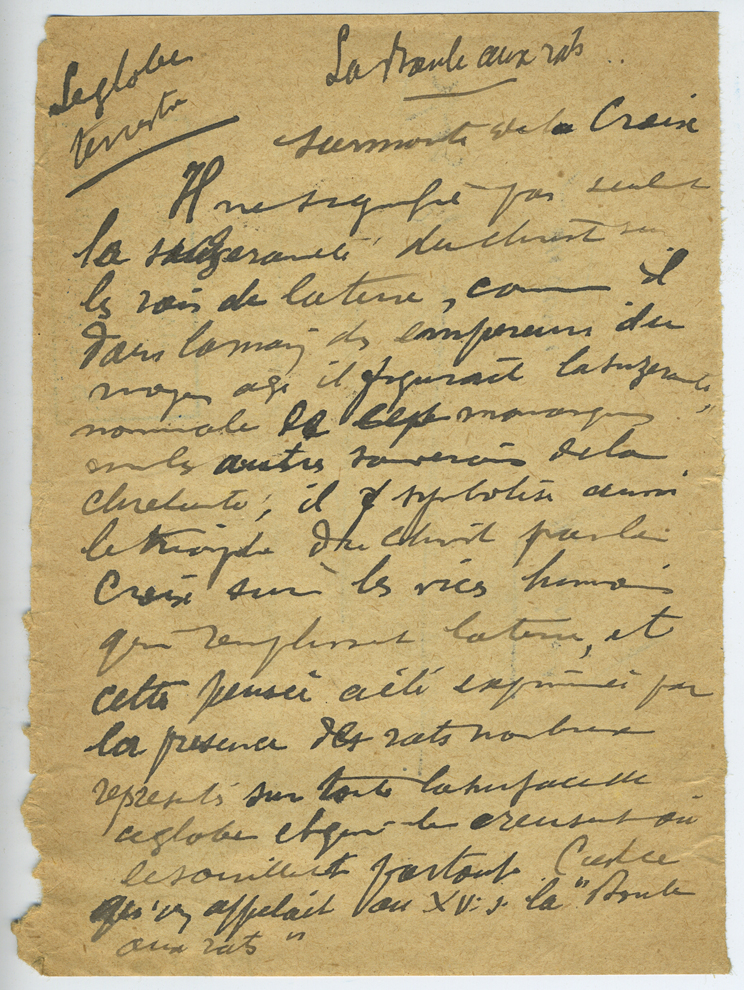 Le globe
terrestre
La Boule aux rats
surmonté de la Croix
Il ne signifie pas seulet
la suzeraineté du Christ sur
les rois de la terre, comme il
dans la main des empereurs du
moyen age il figurait la suzeraineté
nominale de ces monarques
sur les autres souverains de la
chretienté, il symbolise aussi
le triomphe du Christ par la
Croix sur les vices humains
qui remplissent la terre, et
cette pensée a été exprimée par
la présence des rats nombreux
représentés sur toute la surface de
ce globe et qui le creusent ou
le souillent partout. C'est ce
qu'on appelait au XVI s. la "Boule
aux rats"